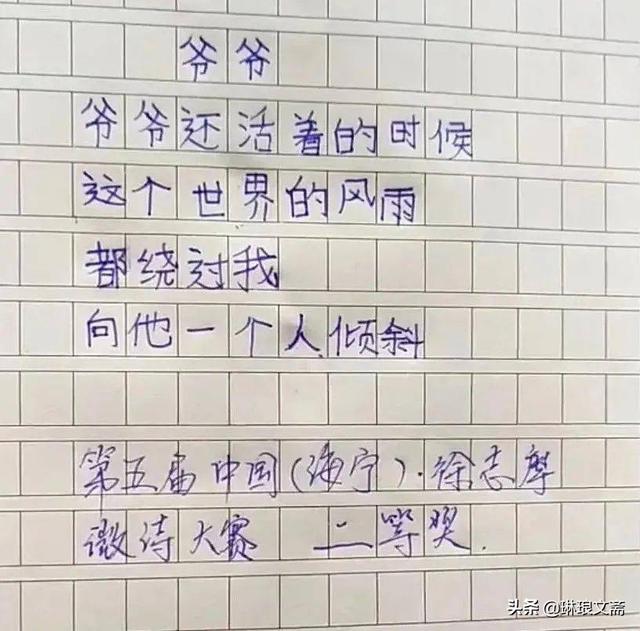 爷爷
爷爷还活着的时候
这个世界的风雨
都绕过我
向他一个人倾斜
第五届中国(海宁)·徐志摩
微诗大赛 二等奖.
头条@琳琅文斋